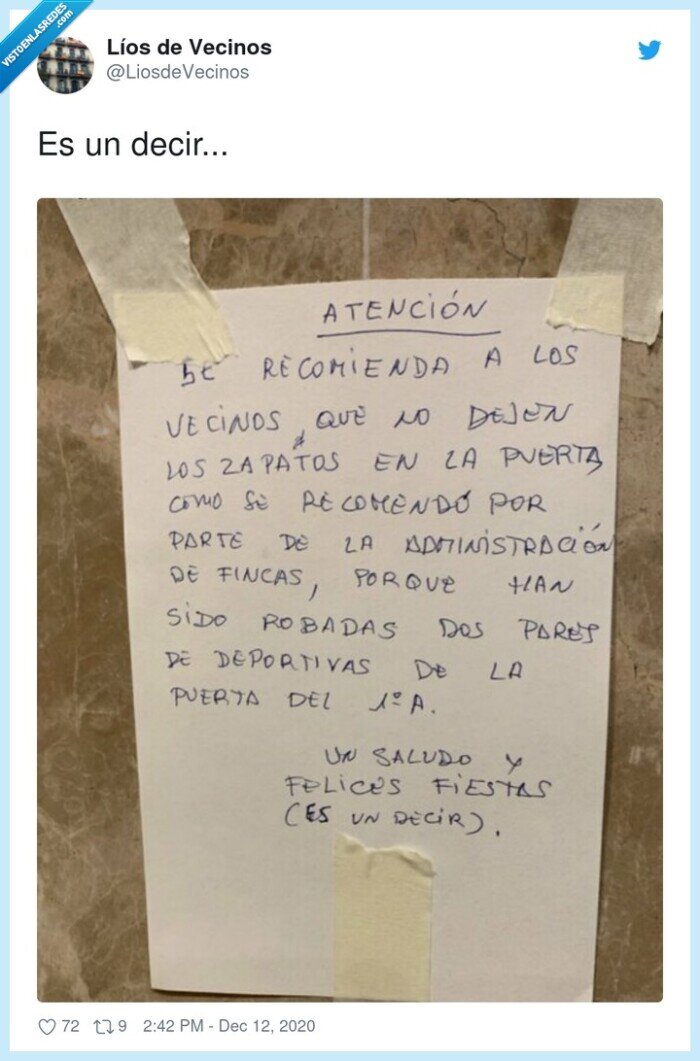 VISTOENLASREDES
.com
Líos de Vecinos
@LiosdeVecinos
Es un decir...
ATENCIÓN
SE RECOMIENDA A LOS
VECINOS, QUE NO DEJEN
LOS ZAPATOS EN LA PUERTA
COMO SE RECOMENDÓ POR
PARTE DE LA ADMINISTRACIÓN
DE FINCAS, PORQUE HAN
SIDO ROBADAS DOS PARES
DE DEPORTIVAS DE LA
PUERTA DEL 1º A.
UN SALUDO Y
FELICES FIESTAS
(ES UN DECIR).
72 9 2:42 PM - Dec 12, 2020